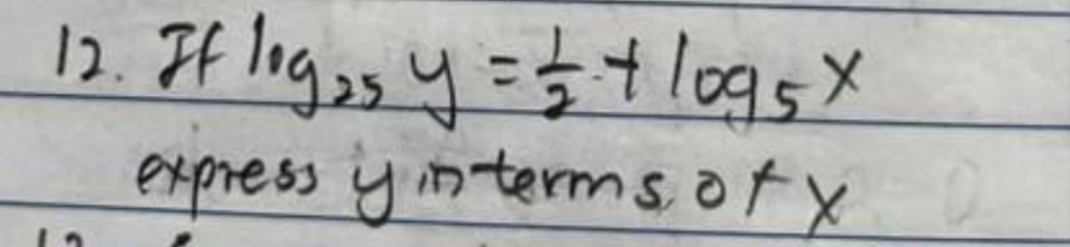 12. If log₂₅ y = ½ + log₅ x
express y in terms of x